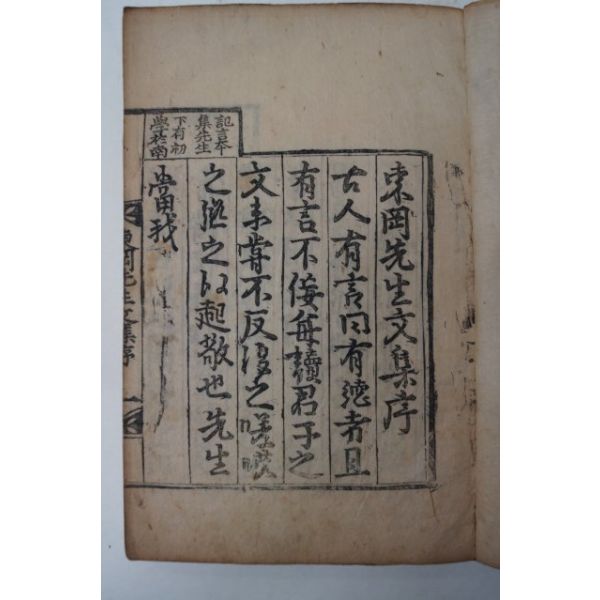 東岡先生文集序
古人有言曰有德者且
有言不佞每讀君子之
文未嘗不反復之嗟歎
之繼之以起敬也先生
記言夲
集先生
下有初
學於南
當我
東岡先生文集序